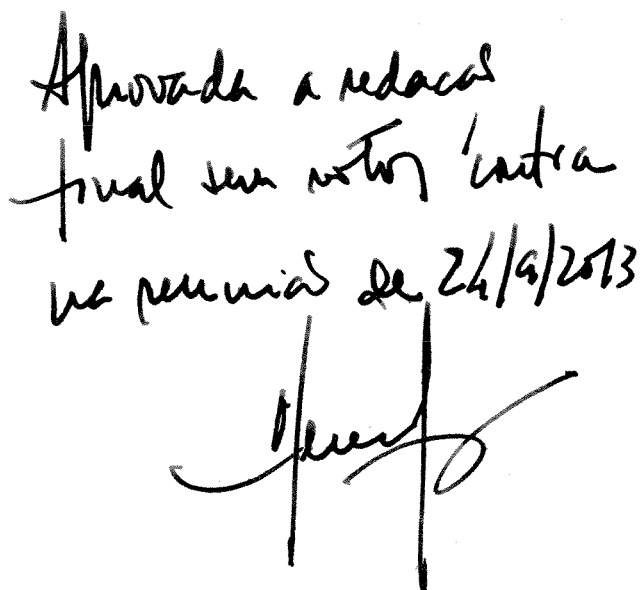 Aprovada a redacão
final sem votos contra
na reunião de 24/9/2013